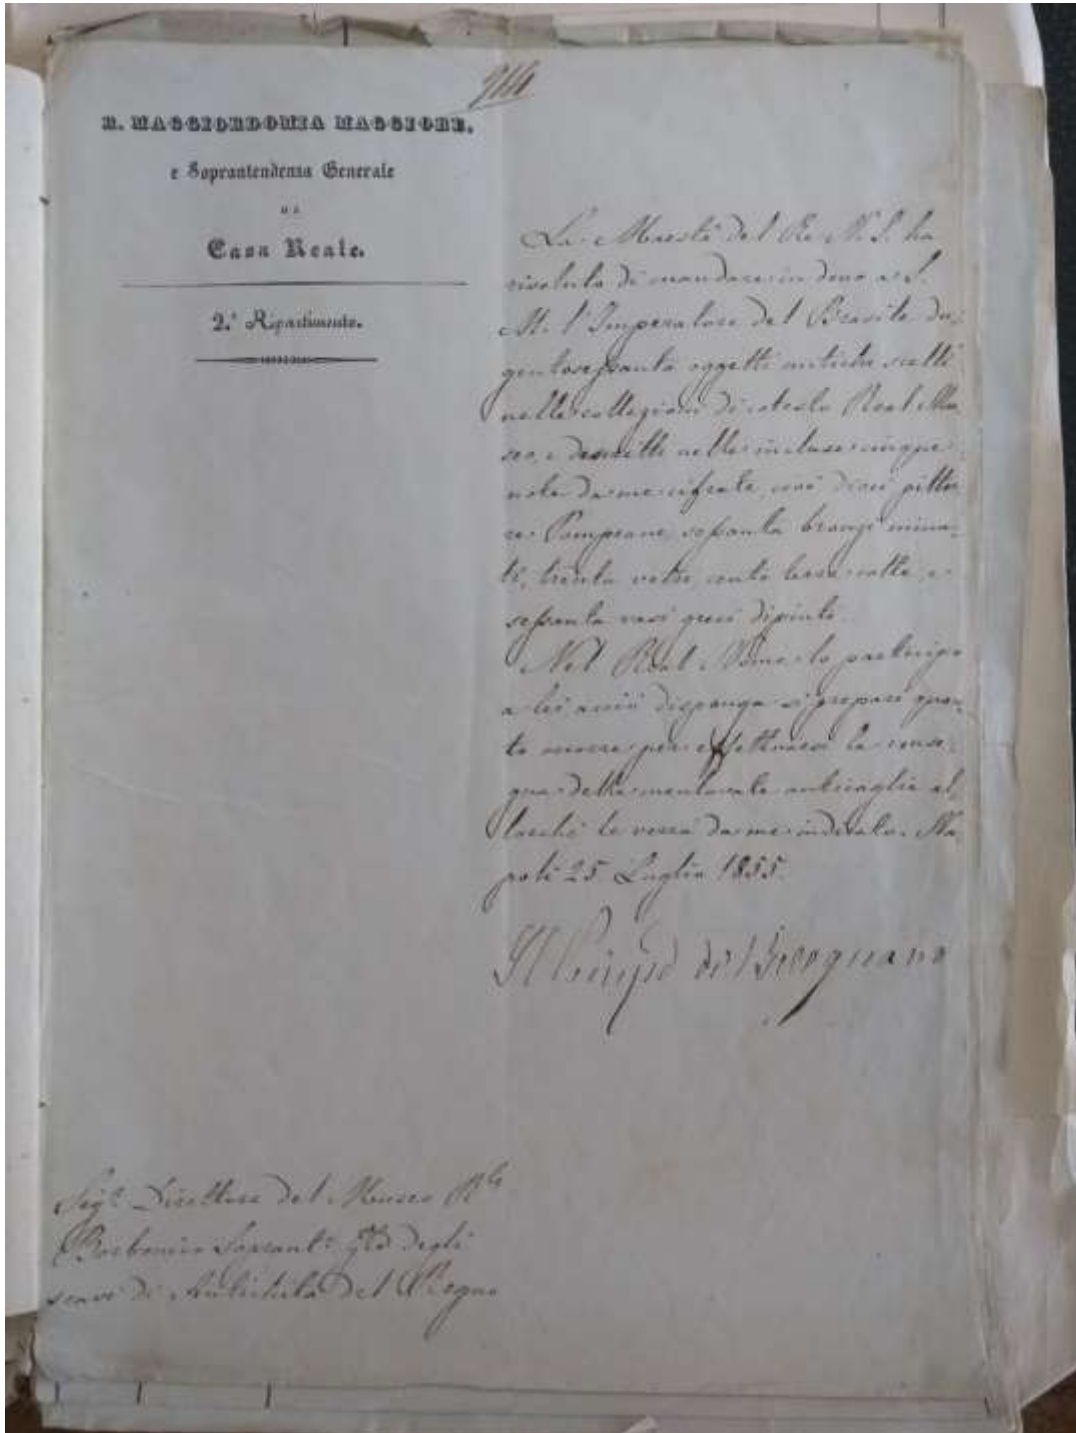 R. MAGGIORDOMIA MAGGIORE,
e Soprantendenza Generale
DI
Casa Reale.
2.° Ripartimento.
La Maestà del Re N. S. ha
risoluto di mandare in dono a S.
M. l'Imperatore del Brasile du-
gentosessanta oggetti antichi scelti
nelle collezioni di cotesto Real Mu-
seo, e descritti nelle incluse cinque
note da me cifrate, cioè dieci pittu-
re Pompeane, sessanta bronzi minu-
ti, trenta vetri, cento terre cotte, e
sessanta vasi greci dipinti.
Nel Real Nome lo partecipo
a lei acciò disponga si prepari quan-
to occorre per effettuarsi la conse-
gna delle mentovate anticaglie al-
lorchè le verrà da me indicato. Na-
poli 25 Luglio 1855.
Il Principe di Bisignano
Sig.r Direttore del Museo R.le
Borbonico Soprant.e degli
scavi di Antichità del Regno